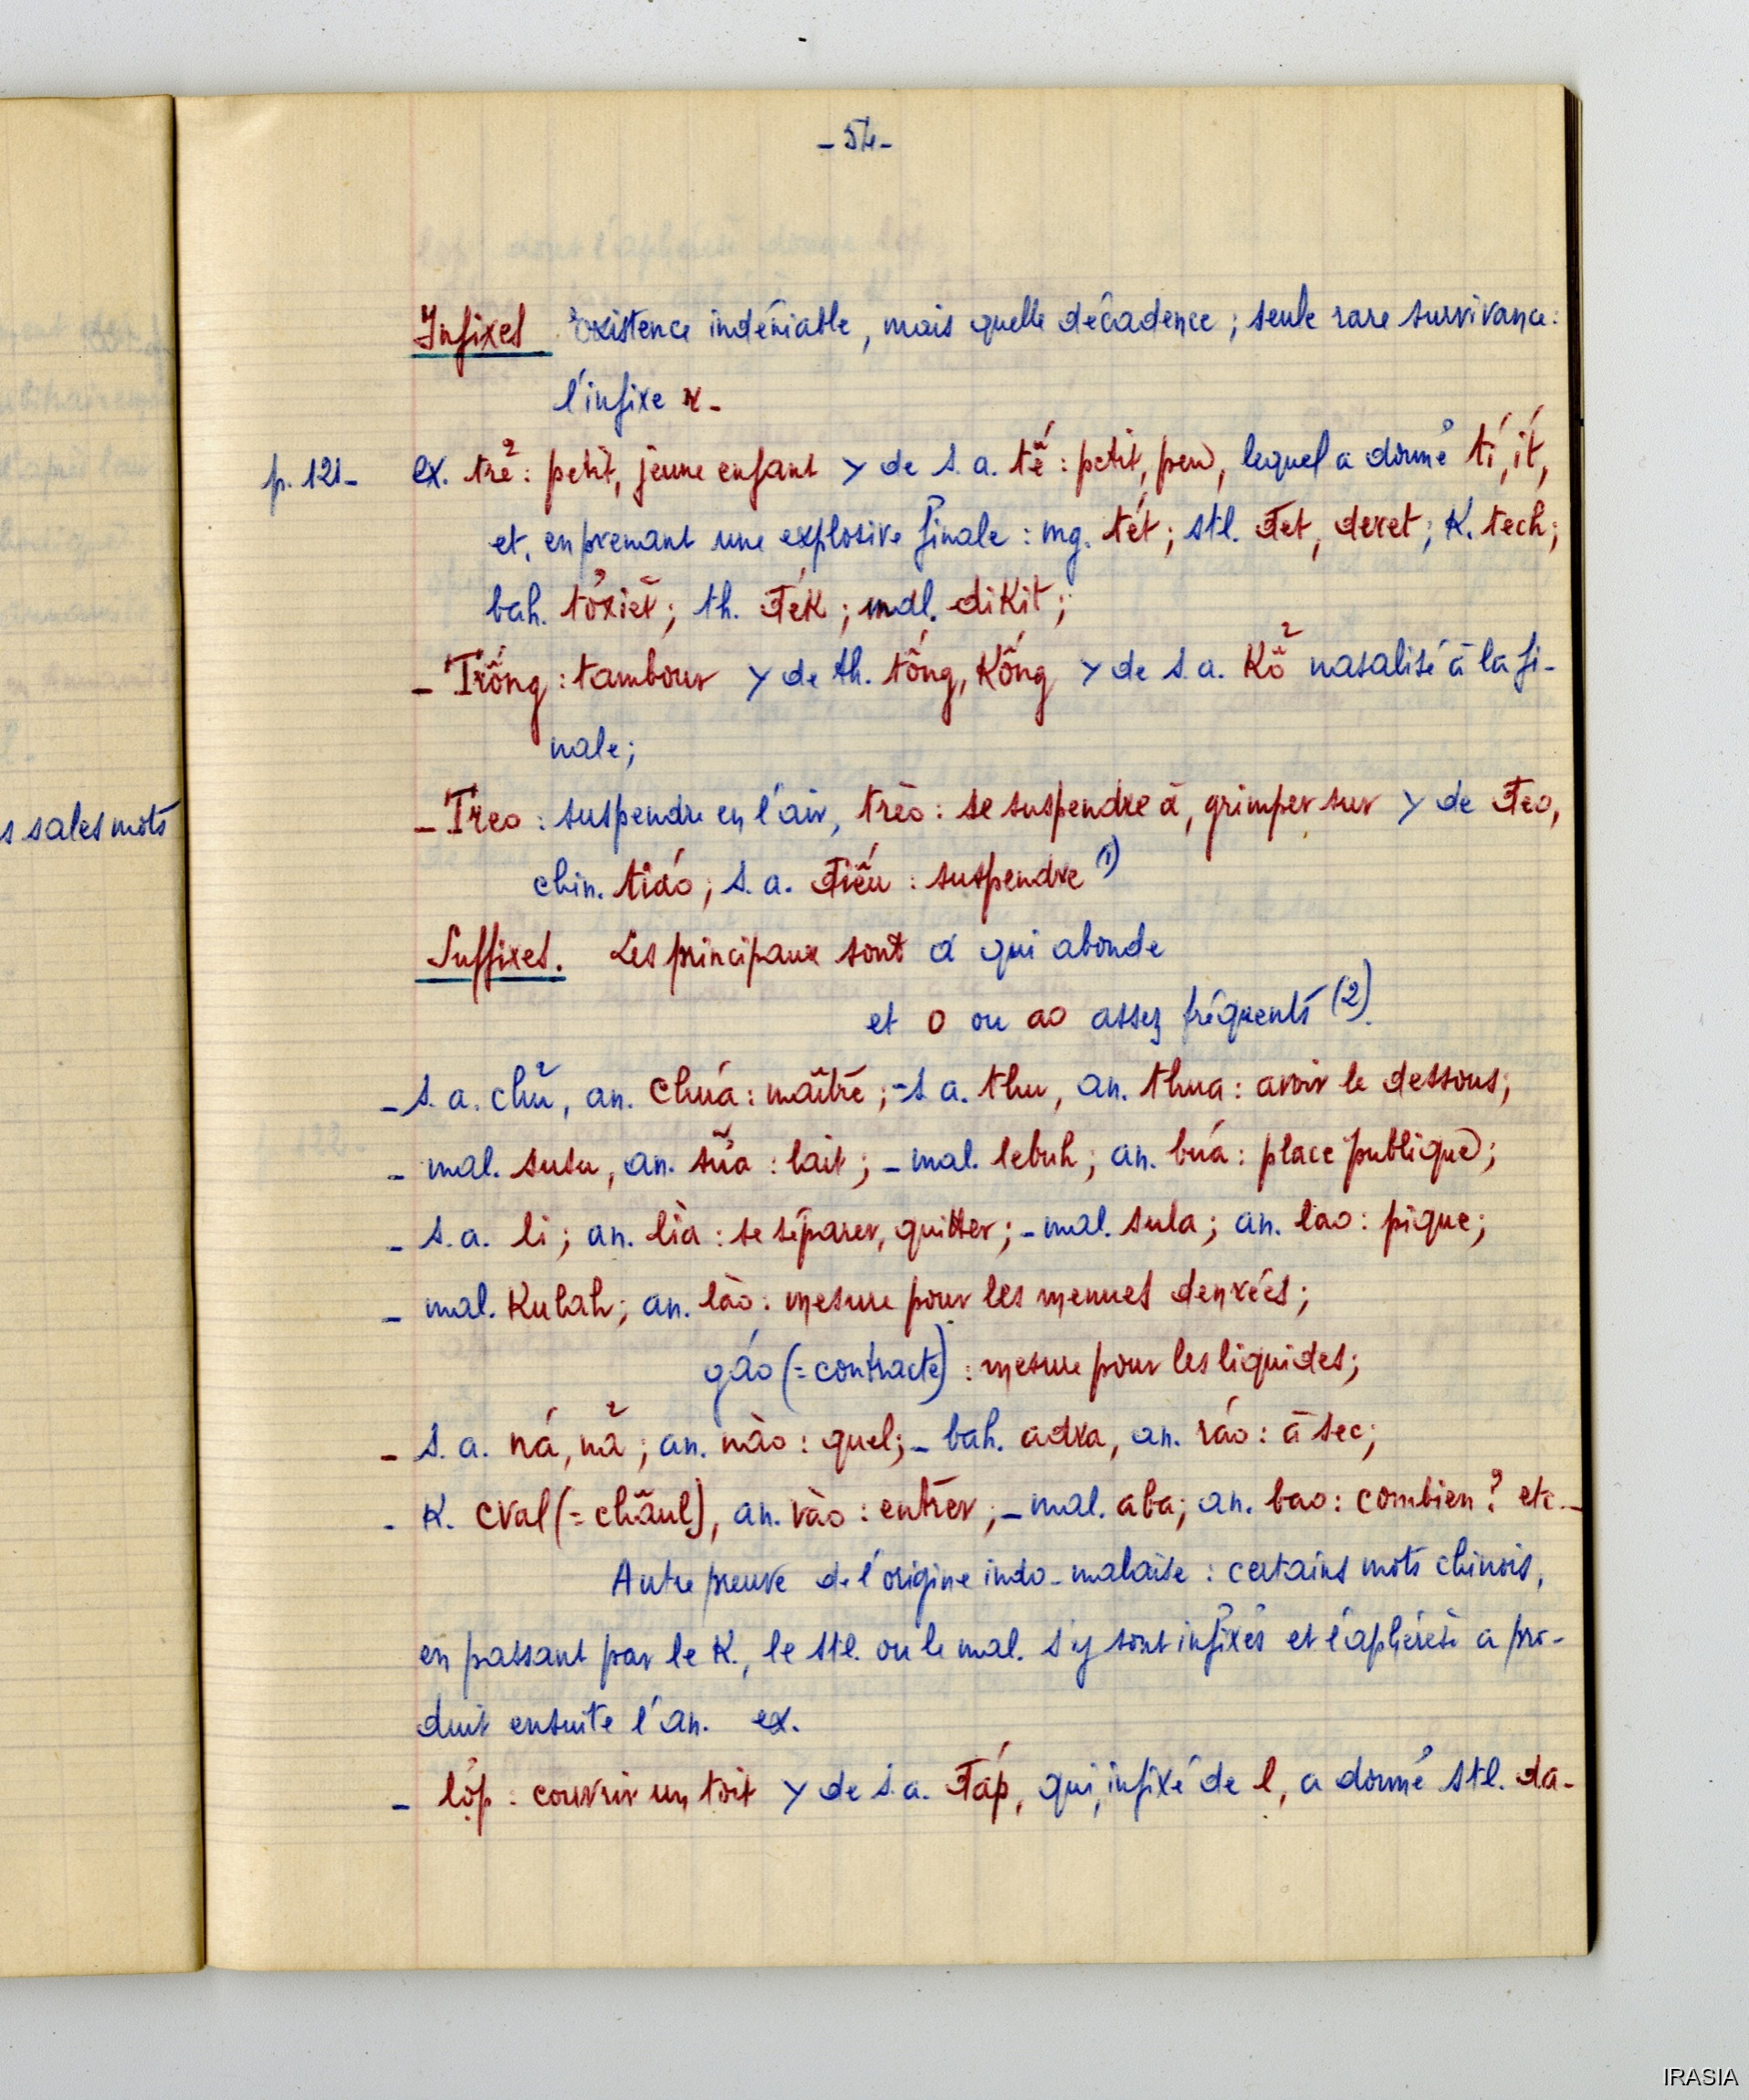 - 54 -
Infixes Existence indéniable, mais quelle décadence ; seule rare survivance :
l'infixe r -
p. 121 - ex. trẻ : petit, jeune enfant > de s. a. tế : petit, peu, lequel a donné tí, ít,
et, en prenant une explosive finale : mg. tét ; stl. đet, deret ; K. tech ;
bah. tơxiĕt ; th. đék ; mal. dikit ;
- Trống : tambour > de th. tống, kống > de s. a. Kổ nasalisé à la fi-
nale ;
- Treo : suspendre en l'air, trèo : se suspendre à, grimper sur > de đeo,
chin. tiáo ; s. a. điếu : suspendre (1)
Suffixes. Les principaux sont a qui abonde
et o ou ao assez fréquents (2).
- s. a. chủ, an. chúa : maître ; - s a. thu, an. thua : avoir le dessous ;
- mal. susu, an. sữa : lait ; - mal. lebuh ; an. búa : place publique ;
- s. a. li ; an. lìa : se séparer, quitter ; - mal. sula ; an. lao : pique ;
- mal. Kulah ; an. lào : mesure pour les menues denrées ;
gáo (= contracté) : mesure pour les liquides ;
- s. a. ná, nả ; an. nào : quel ; - bah. adra, an. ráo : à sec ;
- K. cval (= chăul), an. vào : entrer ; - mal. aba ; an. bao : combien ? etc. -
Autre preuve de l'origine indo-malaise : certains mots chinois,
en passant par le K., le stl. ou le mal. s'y sont infixés et l'aphérèse a pro-
duit ensuite l'an. ex.
- lợp : couvrir un toit > de s. a. đáp, qui, infixé de l, a donné stl. da-
s sales mots
IRASIA